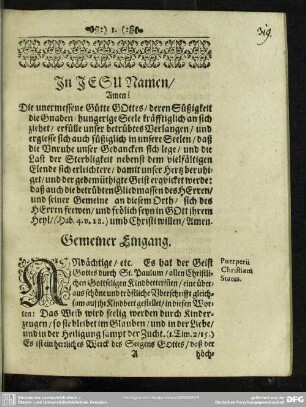 ❧:) 1. (:☙
319.
In JESU Namen/
Amen!
Die unermessene Gütte GOttes/ deren Süßigkeit
die Gnaden-hungerige Seele kräfftiglich an sich
ziehet/ erfülle unser betrübtes Verlangen/ und
ergiesse sich auch süßiglich in unsere Seelen/ daß
die Unruhe unser Gedancken sich lege/ und die
Last der Sterbligkeit nebenst dem vielfältigen
Elende sich erleichtere/ damit unser Hertz beruhi-
get/ und der gedemüthigte Geist erqvicket werde:
daß auch die betrübten Gliedmassen des HErren/
und seiner Gemeine an diesem Orth/ sich des
HErren frewen/ und frölich seyn in GOtt jhrem
Heyl/ (Hab. 4. v. 18.) umb Christi willen/ Amen.
Gemeiner Eingang.
ANdächtige/ etc. Es hat der Geist
Gottes durch St. Paulum/ allen Christli-
chen Gottseligen Kindbetterinnen/ eine über-
aus schöne und tröstliche Uberschrifft gleich-
sam auff jhr Kindbett gestellet/ in diesen Wor-
ten: Das Weib wird seelig werden durch Kinder-
zeugen/ so sie bleibet im Glauben/ und in der Liebe/
und in der Heiligung sampt der Zucht. (1. Tim. 2/ 15.)
Es ist ein herrliches Werck des Seegens Gottes/ daß er
Puerperii
Christiani
Status.
A
höch-